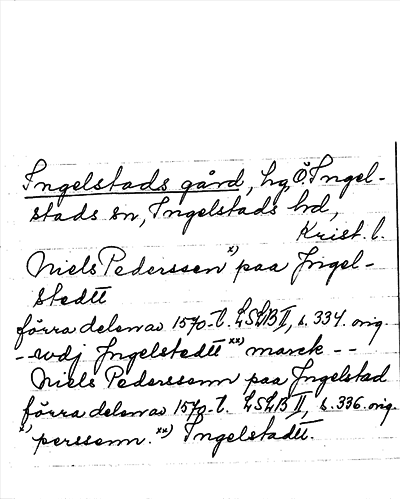 Ingelstads gård, hg, Ö. Ingel-
stads sn, Ingelstads hd,
Krist. l.
Niels Pederssen x) paa Jngel-
stedtt
förra delen av 1570-t. LSLB II, s. 334. orig.
-- wdj Jngelstedtt xx) marck --
Niels Pederssenn paa Jngelstad
förra delen av 1570-t. LSLB II, s. 336. orig.
x) perssenn. xx) Ingelstadtt.